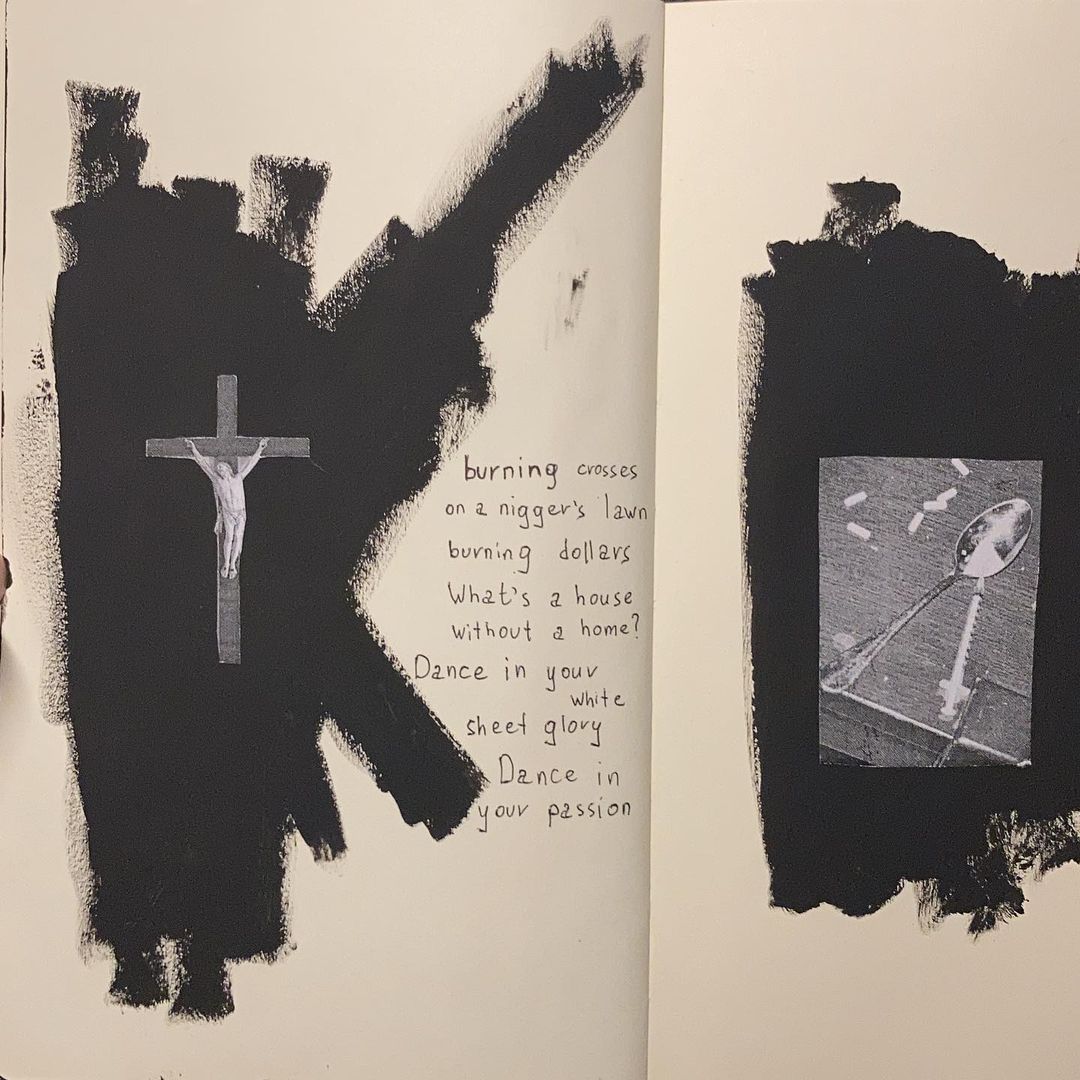 burning crosses
on a nigger's lawn
burning dollars
What's a house
without a home?
Dance in your
white
sheet glory
Dance in
your passion